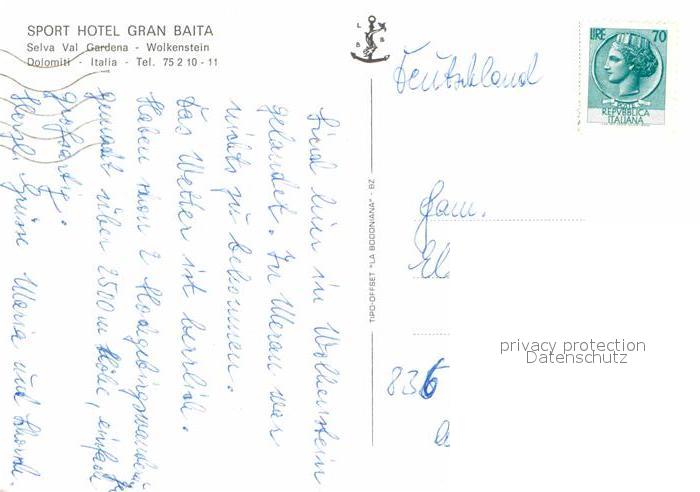 SPORT HOTEL GRAN BAITA
Selva Val Gardena - Wolkenstein
Dolomiti - Italia - Tel. 75 2 10 - 11
Sind hier in Wolkenstein
gelandet. In Meran war
nichts zu bekommen.
Das Wetter ist herrlich.
Haben schon 2 Hochgebirgswanderungen
gemacht über 2500 m Höhe, einfach
großartig.
Herzl. Grüsse Maria und
L B B
TIPO-OFFSET "LA BODONIANA" - BZ
Deutschland
LIRE 70
REPVBBLICA
ITALIANA
Fam.
El
836
privacy protection
Datenschutz